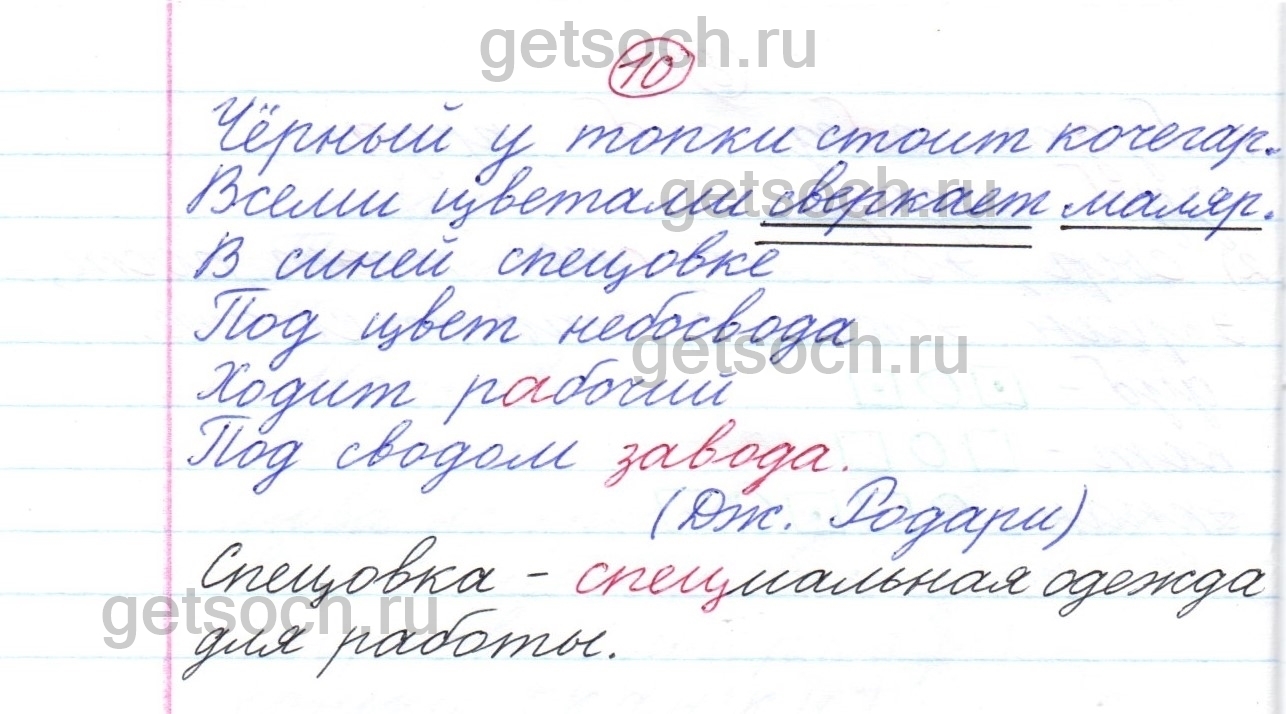 getsoch.ru
10
Чёрный у топки стоит кочегар.
Всеми цветами сверкает маляр.
getsoch.ru
В синей спецовке
Под цвет небосвода
getsoch.ru
Ходит рабочий
Под сводом завода.
(Дж. Родари)
Спецовка - специальная одежда
getsoch.ru
для работы.